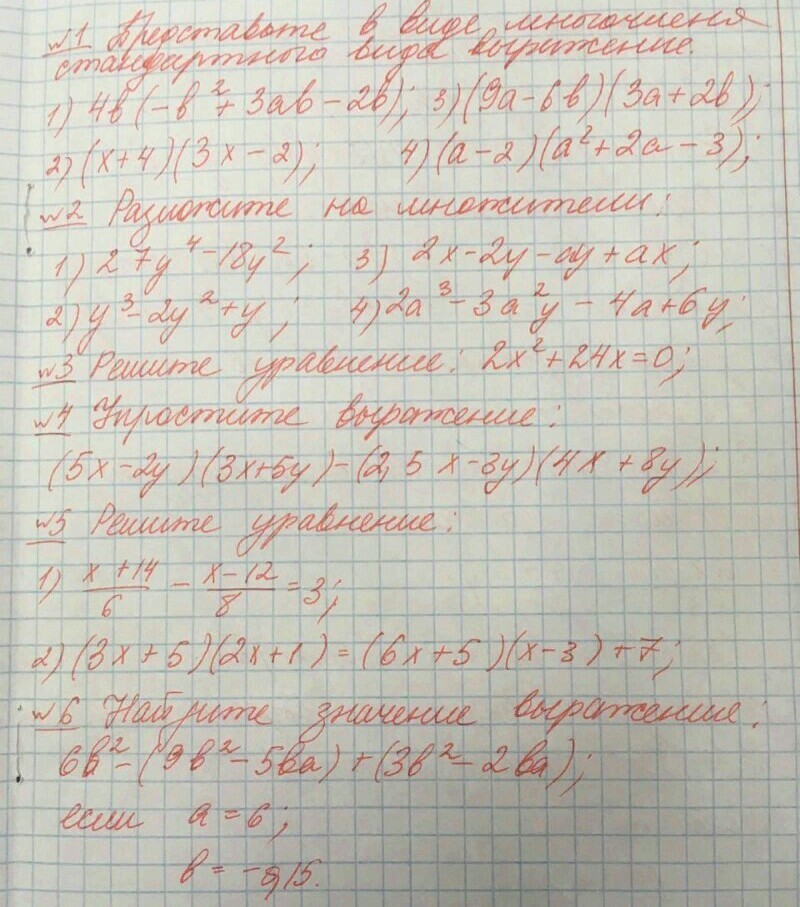 №1 Представьте в виде многочлена
стандартного вида выражение.
1) 4в(-в²+3ав-2в); 3)(9а-6в)(3а+2в);
2)(х+4)(3х-2); 4)(а-2)(а²+2а-3);
№2 Разложите на множители:
1) 27y⁴-18y²; 3) 2x-2y-ay+ax;
2) y³-2y²+y; 4) 2a³-3a²y-4a+6y;
№3 Решите уравнение: 2x²+24x=0;
№4 Упростите выражение:
(5x-2y)(3x+5y)-(2,5x-3y)(4x+8y);
№5 Решите уравнение:
1) (x+14)/6 - (x-12)/8 = 3;
2) (3x+5)(2x+1)=(6x+5)(x-3)+7;
№6 Найдите значение выражение:
6в²-(9в²-5ва)+(3в²-2ва);
если а=6;
в=-0,15.